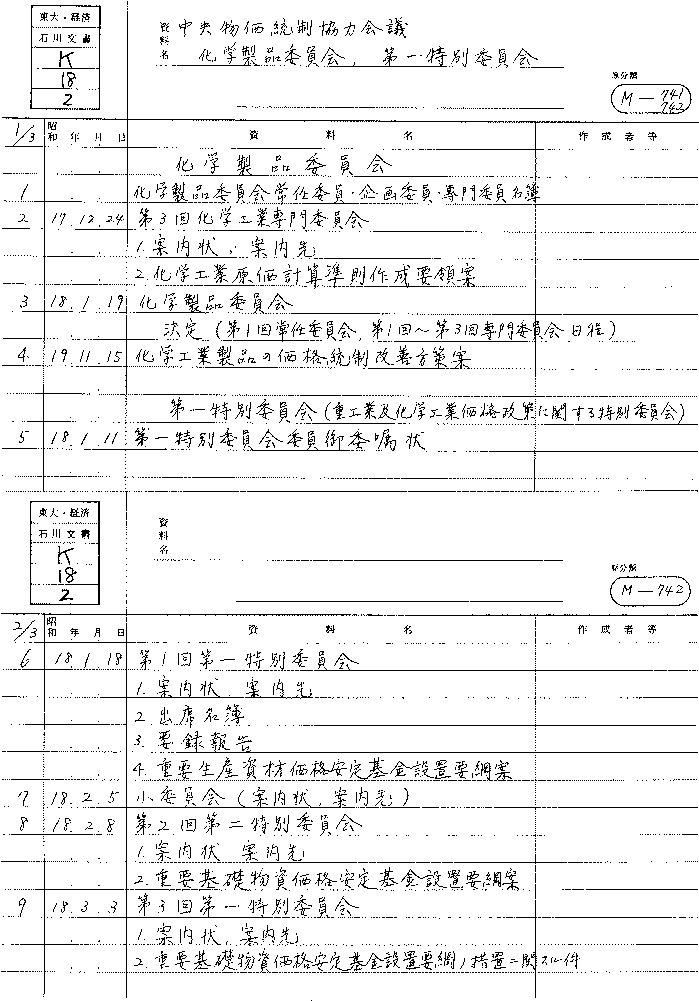 東大・経済
石川文書
K
18
2
資料名
中央物価統制協力会議
化学製品委員会, 第一特別委員会
原分類
M-741
742
1/3 昭和 年 月 日 資 料 名 作成者等
化学製品委員会
1 化学製品委員会常任委員・企画委員・専門委員名簿
2 17.12.24 第3回化学工業専門委員会
1.案内状・案内先
2.化学工業原価計算準則作成要領案
3 18.1.19 化学製品委員会
決定(第1回常任委員会,第1回〜第3回専門委員会日程)
4. 19.11.15 化学工業製品の価格統制改善方策案
第一特別委員会(重工業及化学工業価格政策に関する特別委員会)
5 18.1.11 第一特別委員会委員御委嘱状
東大・経済
石川文書
K
18
2
資料名
原分類
M-742
2/3 昭和 年 月 日 資 料 名 作成者等
6 18.1.18 第1回第一特別委員会
1.案内状.案内先
2.出席名簿
3.要録報告
4.重要生産資材価格安定基金設置要綱案
7 18.2.5 小委員会(案内状.案内先)
8 18.2.8 第2回第二特別委員会
1.案内状 案内先
2.重要基礎物資価格安定基金設置要綱案
9 18.3.3 第3回第一特別委員会
1.案内状,案内先
2.重要基礎物資価格安定基金設置要綱ノ措置ニ関スル件